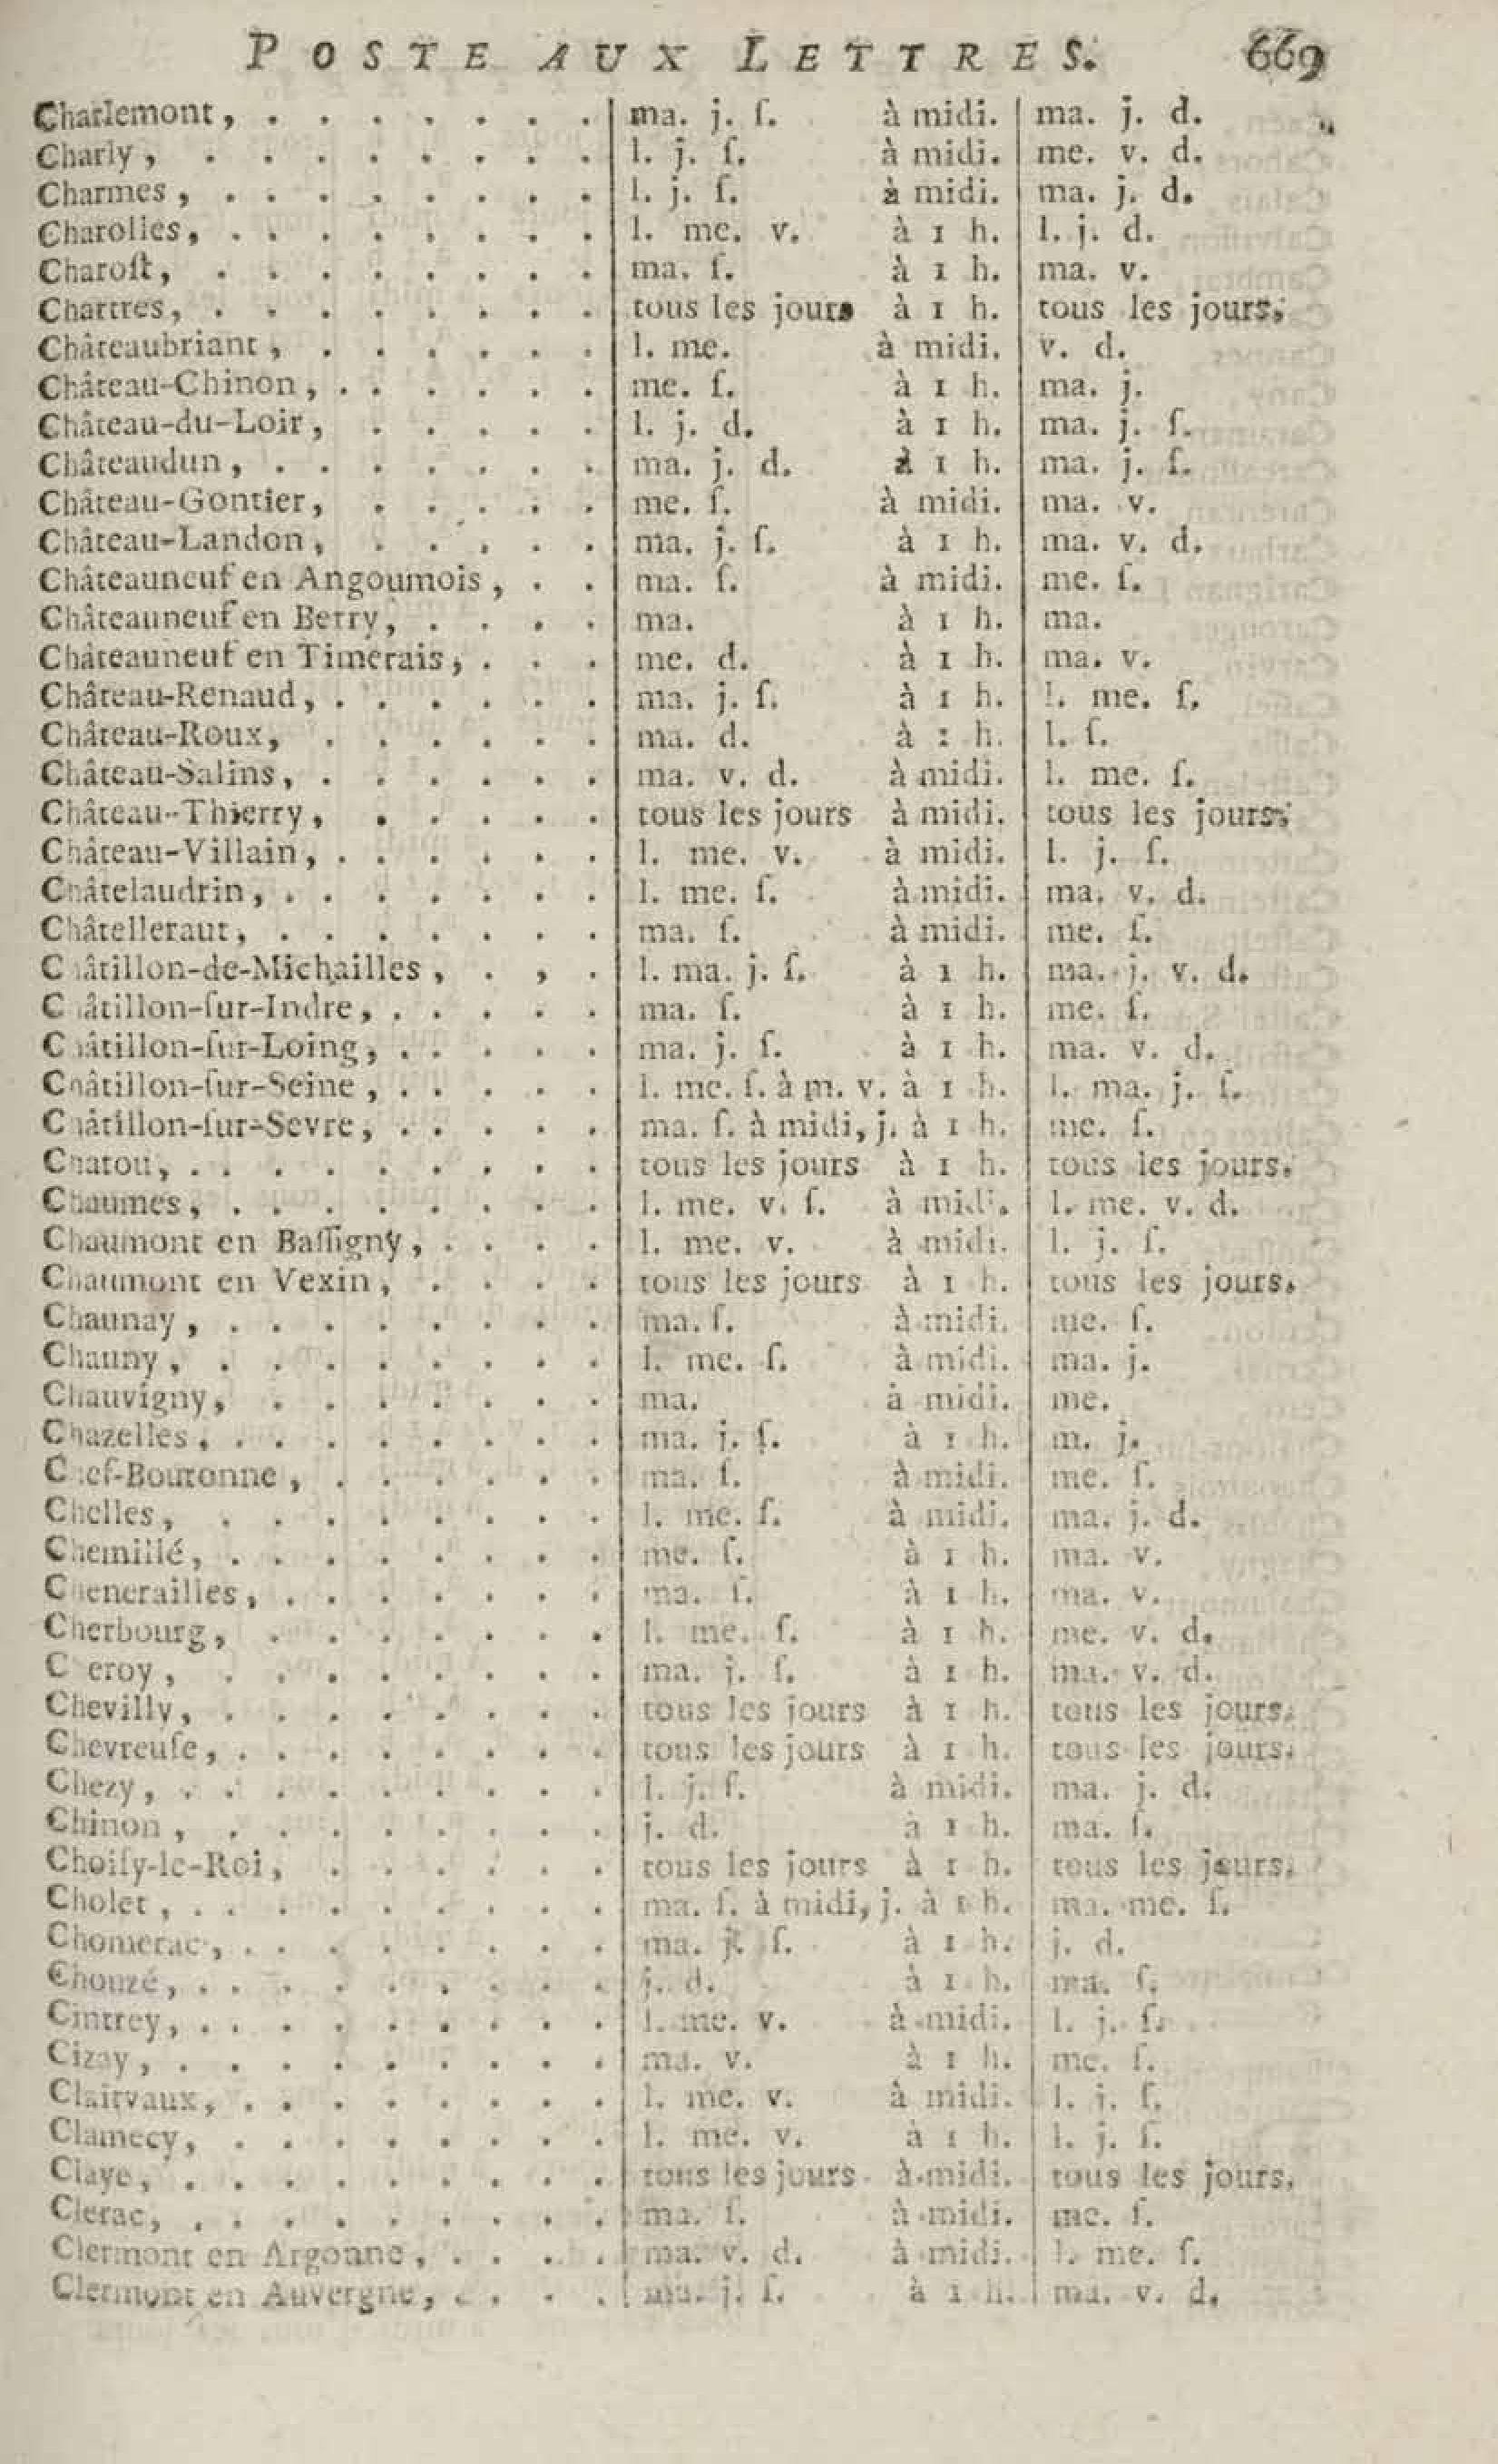 POSTE AUX LETTRES. 669
Charlemont, . . . . . . . ma. j. ſ. à midi. ma. j. d.
Charly, . . . . . . . . l. j. ſ. à midi. me. v. d.
Charmes, . . . . . . . . l. j. ſ. à midi. ma. j. d.
Charolles, . . . . . . . . l. me. v. à 1 h. l. j. d.
Charoſt, . . . . . . . . ma. ſ. à 1 h. ma. v.
Chartres, . . . . . . . . tous les jours à 1 h. tous les jours.
Châteaubriant, . . . . . . l. me. à midi. v. d.
Château-Chinon, . . . . . . me. ſ. à 1 h. ma. j.
Château-du-Loir, . . . . . l. j. d. à 1 h. ma. j. ſ.
Châteaudun, . . . . . . . ma. j. d. à 1 h. ma. j. ſ.
Château-Gontier, . . . . . me. ſ. à midi. ma. v.
Château-Landon, . . . . . ma. j. ſ. à 1 h. ma. v. d.
Châteauneuf en Angoumois, . . ma. ſ. à midi. me. ſ.
Châteauneuf en Berry, . . . . ma. à 1 h. ma.
Châteauneuf en Timerais, . . . me. d. à 1 h. ma. v.
Château-Renaud, . . . . . . ma. j. ſ. à 1 h. l. me. ſ.
Château-Roux, . . . . . . ma. d. à 1 h. l. ſ.
Château-Salins, . . . . . . ma. v. d. à midi. l. me. ſ.
Château-Thierry, . . . . . tous les jours à midi. tous les jours.
Château-Villain, . . . . . . l. me. v. à midi. l. j. ſ.
Châtelaudrin, . . . . . . . l. me. ſ. à midi. ma. v. d.
Châtelleraut, . . . . . . . ma. ſ. à midi. me. ſ.
Châtillon-de-Michailles, . , . l. ma. j. ſ. à 1 h. ma. j. v. d.
Châtillon-ſur-Indre, . . . . . ma. ſ. à 1 h. me. ſ.
Châtillon-ſur-Loing, . . . . . ma. j. ſ. à 1 h. ma. v. d.
Châtillon-ſur-Seine, . . . . . l. me. ſ. à m. v. à 1 h. l. ma. j. ſ.
Châtillon-ſur-Sevre, . . . . . ma. ſ. à midi, j. à 1 h. me. ſ.
Chatou, . . . . . . . . . tous les jours à 1 h. tous les jours.
Chaumes, . . . . . . . . l. me. v. ſ. à midi. l. me. v. d.
Chaumont en Baſſigny, . . . . l. me. v. à midi. l. j. ſ.
Chaumont en Vexin, . . . . tous les jours à 1 h. tous les jours.
Chaunay, . . . . . . . . ma. ſ. à midi. me. ſ.
Chauny, . . . . . . . . l. me. ſ. à midi. ma. j.
Chauvigny, . . . . . . . ma. à midi. me.
Chazelles, . . . . . . . . ma. j. ſ. à 1 h. m. j.
Chef-Boutonne, . . . . . . ma. ſ. à midi. me. ſ.
Chelles, . . . . . . . . l. me. ſ. à midi. ma. j. d.
Chemillé, . . . . . . . . me. ſ. à 1 h. ma. v.
Chenerailles, . . . . . . . ma. ſ. à 1 h. ma. v.
Cherbourg, . . . . . . . l. me. ſ. à 1 h. me. v. d.
C eroy, . . . . . . . . ma. j. ſ. à 1 h. ma. v. d.
Chevilly, . . . . . . . . tous les jours à 1 h. tous les jours.
Chevreuſe, . . . . . . . . tous les jours à 1 h. tous les jours.
Chezy, . . . . . . . . . l. j. ſ. à midi. ma. j. d.
Chinon, . . . . . . . . j. d. à 1 h. ma. ſ.
Choiſy-le-Roi, . . . . . . tous les jours à 1 h. tous les jours.
Cholet, . . . . . . . . . ma. ſ. à midi, j. à 1 h. ma. me. ſ.
Chomerac, . . . . . . . . ma. j. ſ. à 1 h. j. d.
Chouzé, . . . . . . . . . j. d. à 1 h. ma. ſ.
Cintrey, . . . . . . . . . l. me. v. à midi. l. j. ſ.
Cizay, . . . . . . . . . ma. v. à 1 h. me. ſ.
Clairvaux, . . . . . . . . l. me. v. à midi. l. j. ſ.
Clamecy, . . . . . . . . l. me. v. à 1 h. l. j. ſ.
Claye, . . . . . . . . . tous les jours à midi. tous les jours.
Clerac, . . . . . . . . . ma. ſ. à midi. me. ſ.
Clermont en Argonne, . . . . ma. v. d. à midi. l. me. ſ.
Clermont en Auvergne, . . . . ma. j. ſ. à 1 h. ma. v. d.